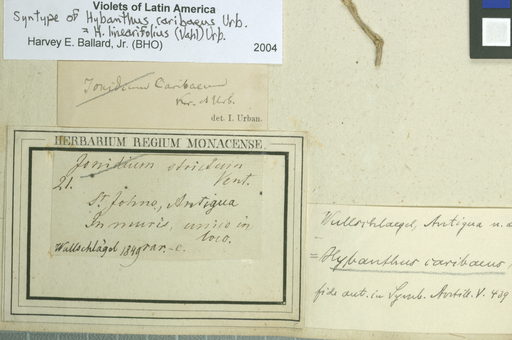 Violets of Latin America
Syntype of Hybanthus caribaeus Urb.
= H. linearifolius (Vahl) Urb.
Harvey E. Ballard, Jr. (BHO) 2004
Ionidium Caribaeum
Kr. et Urb.
det. I. Urban.
HERBARIUM REGIUM MONACENSE.
Ionidium strictum
21. Vent.
St Johns, Antigua
In muris, unico in
loco.
Wullschlägel 1849 rar-e.
Wullschlaegel, Antigua n.
= Hybanthus caribaeus
fide aut. in Symb. Antill. V. 439